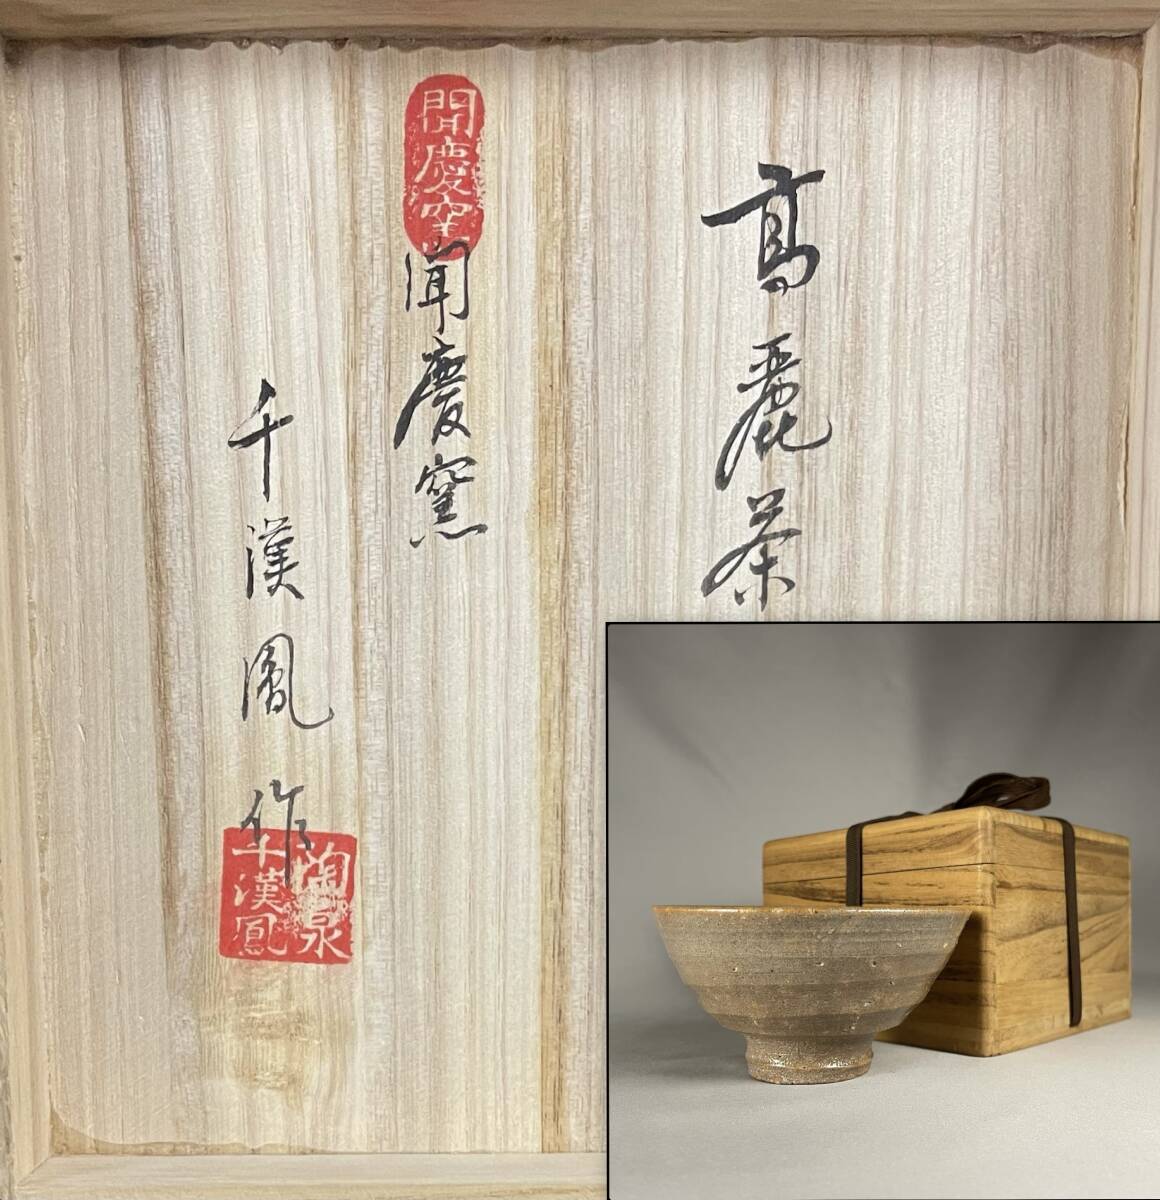 高麗茶
聞慶窯
聞慶窯
千漢鳳作
陶泉
千漢鳳